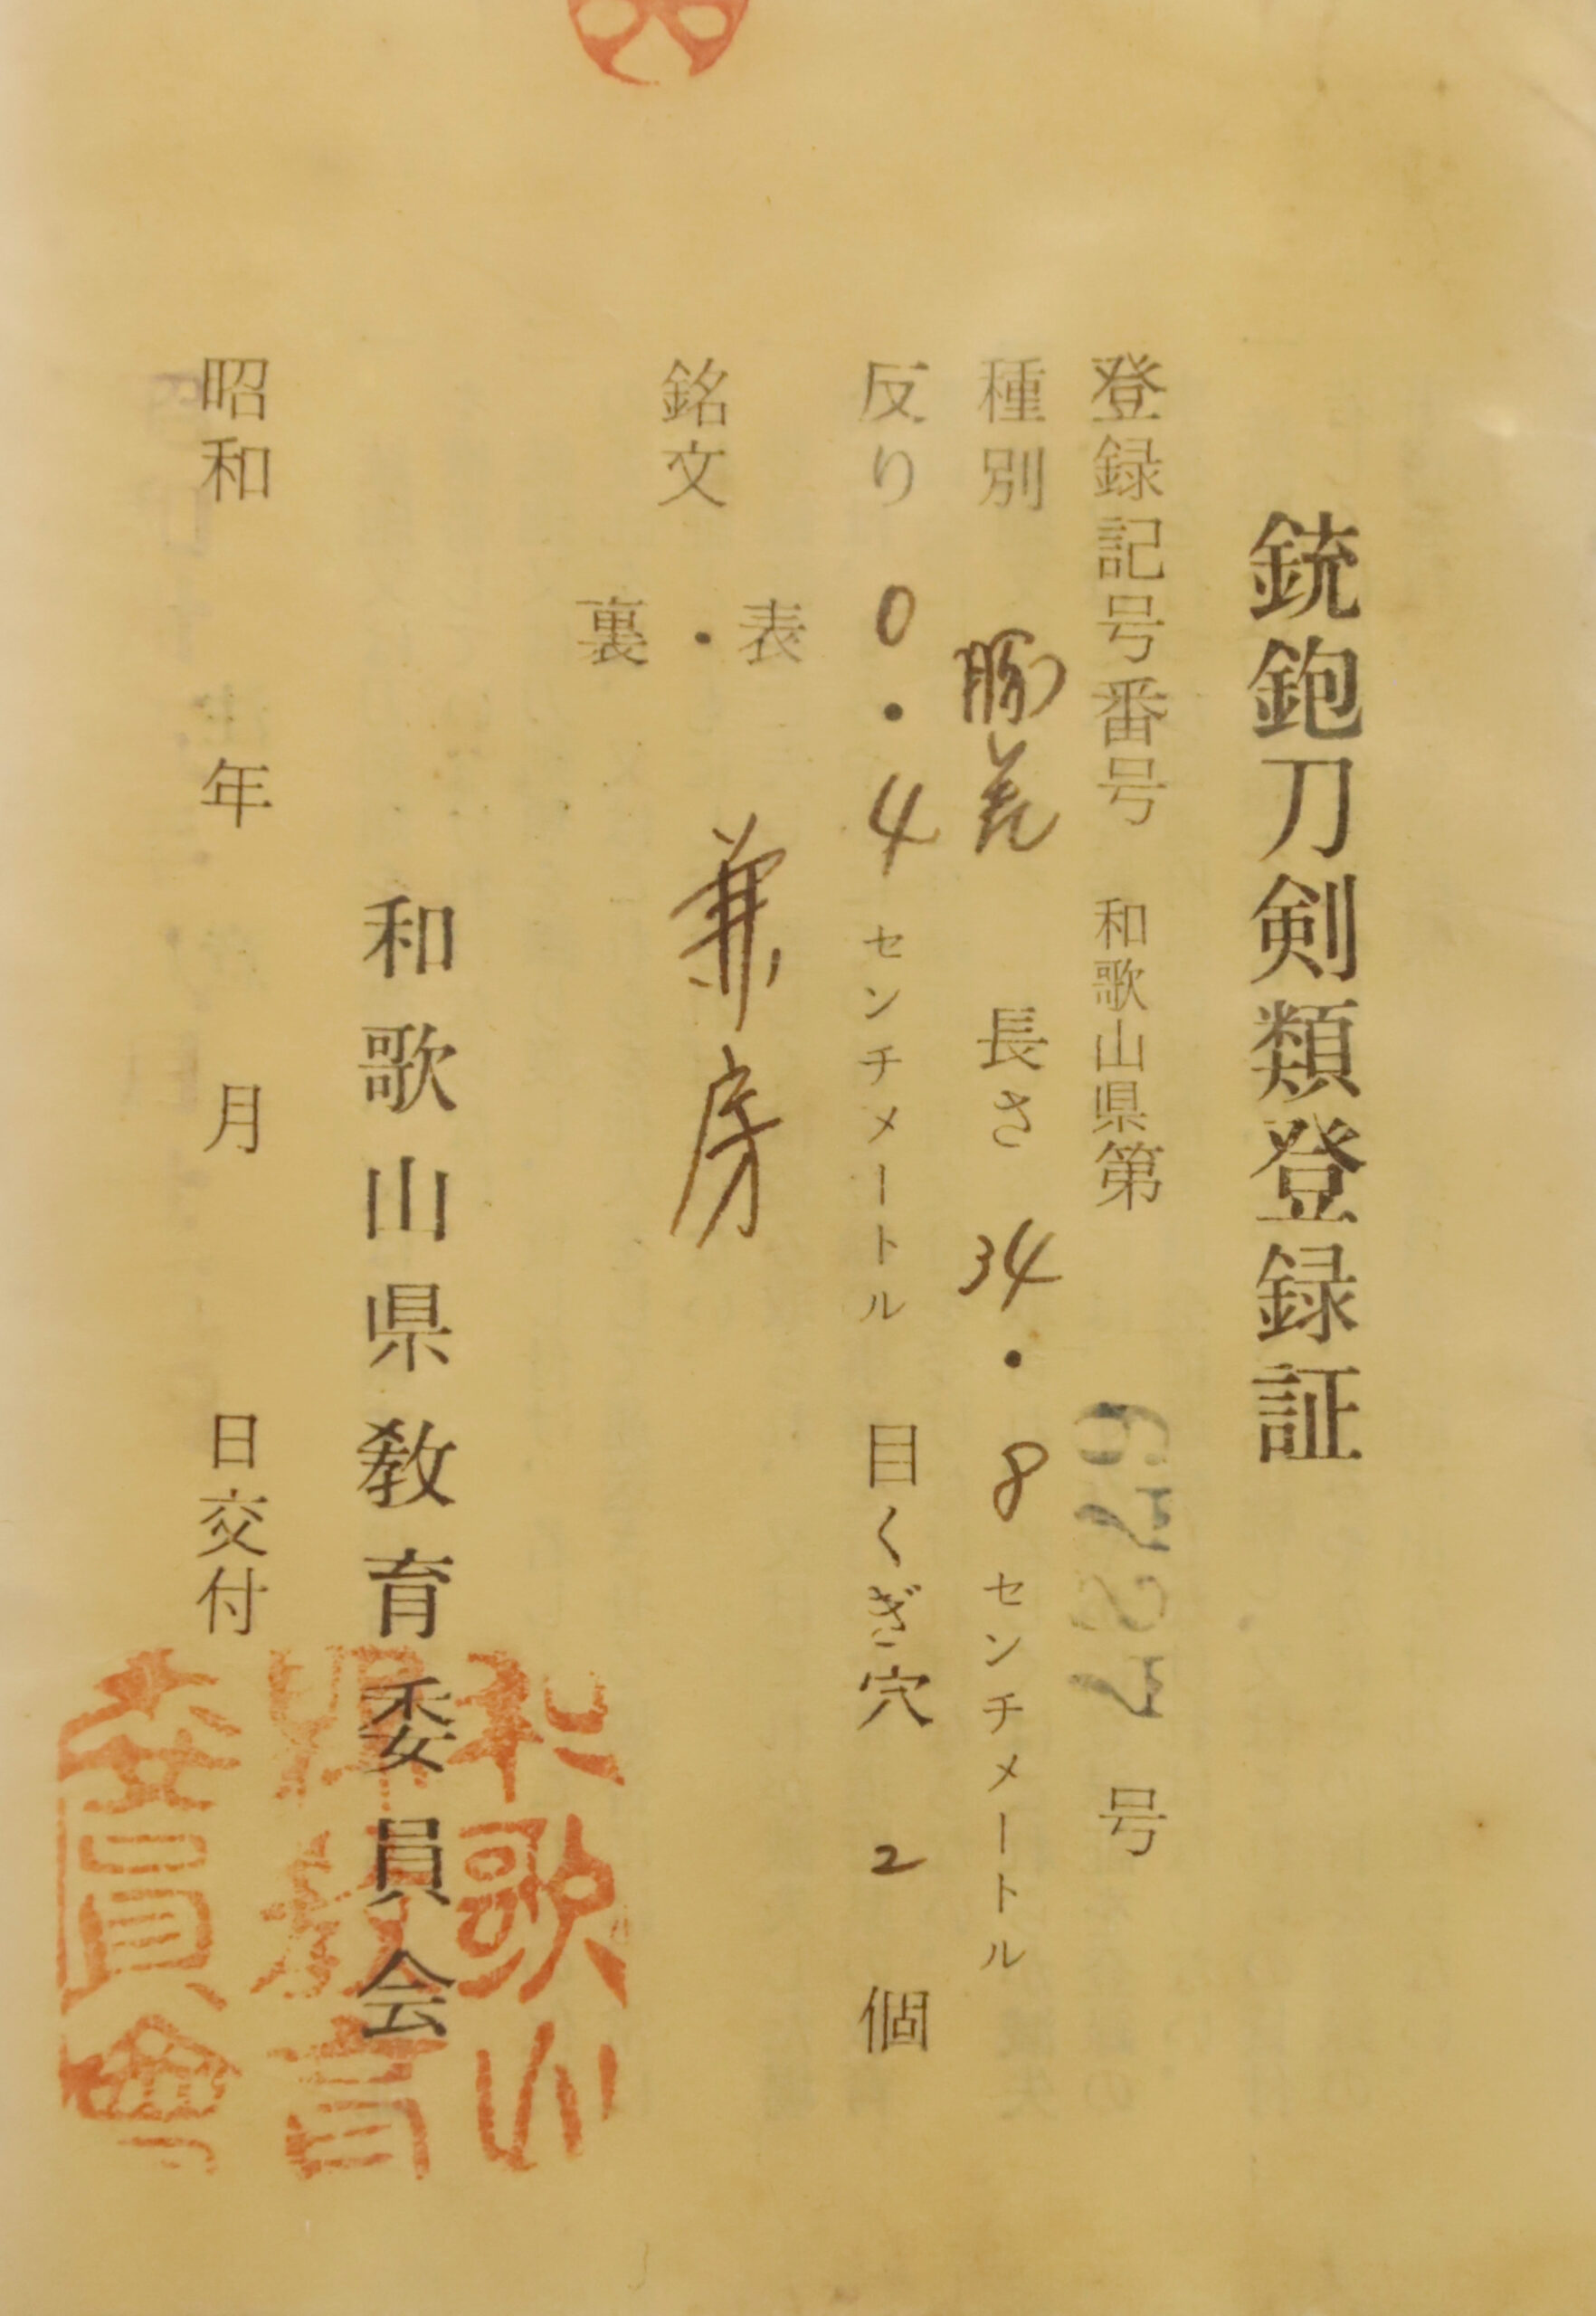 銃鉋刀剣類登録証
登録記号番号 和歌山県第 号
種別 脇差 長さ 34・8 センチメートル
反り 0・4 センチメートル 目くぎ穴 2 個
銘文 表・裏 兼房
和歌山県教育委員会
昭和 年 月 日交付
和歌山
縣教育
委員會